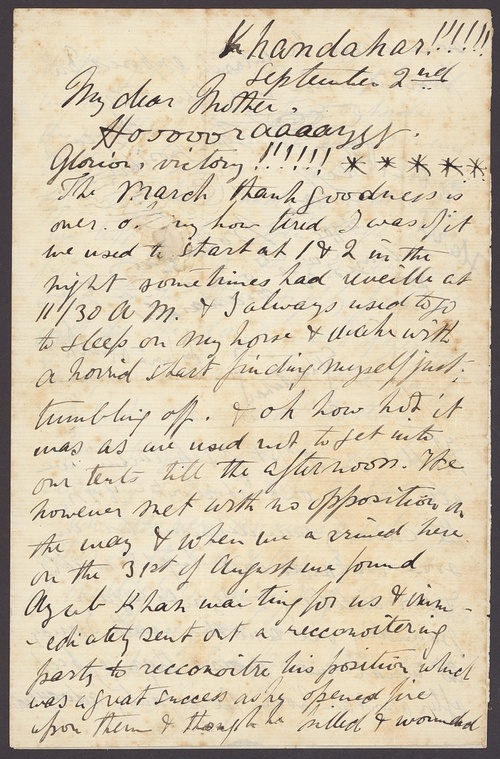 Khandahar!!!!!
September 2nd
My dear Mother,
Hooooooraaaayyy.
Glorious victory!!!!!! * * * * *
The March thank goodness is
over. my how tired I was of it
we used to start at 1 & 2 in the
night sometimes had reveille at
11/30 A M. & I always used to go
to sleep on my horse & wake with
a horrid start finding myself just
tumbling off. & oh how hot it
was as we used not to get into
our tents till the afternoon. We
however met with no opposition on
the way & when we arrived here
on the 31st of August we found
Ayub Khan waiting for us & imm-
-ediately sent out a recconoitering
party to recconoitre his position which
was a great success as he opened fire
upon them & though he killed & wounded